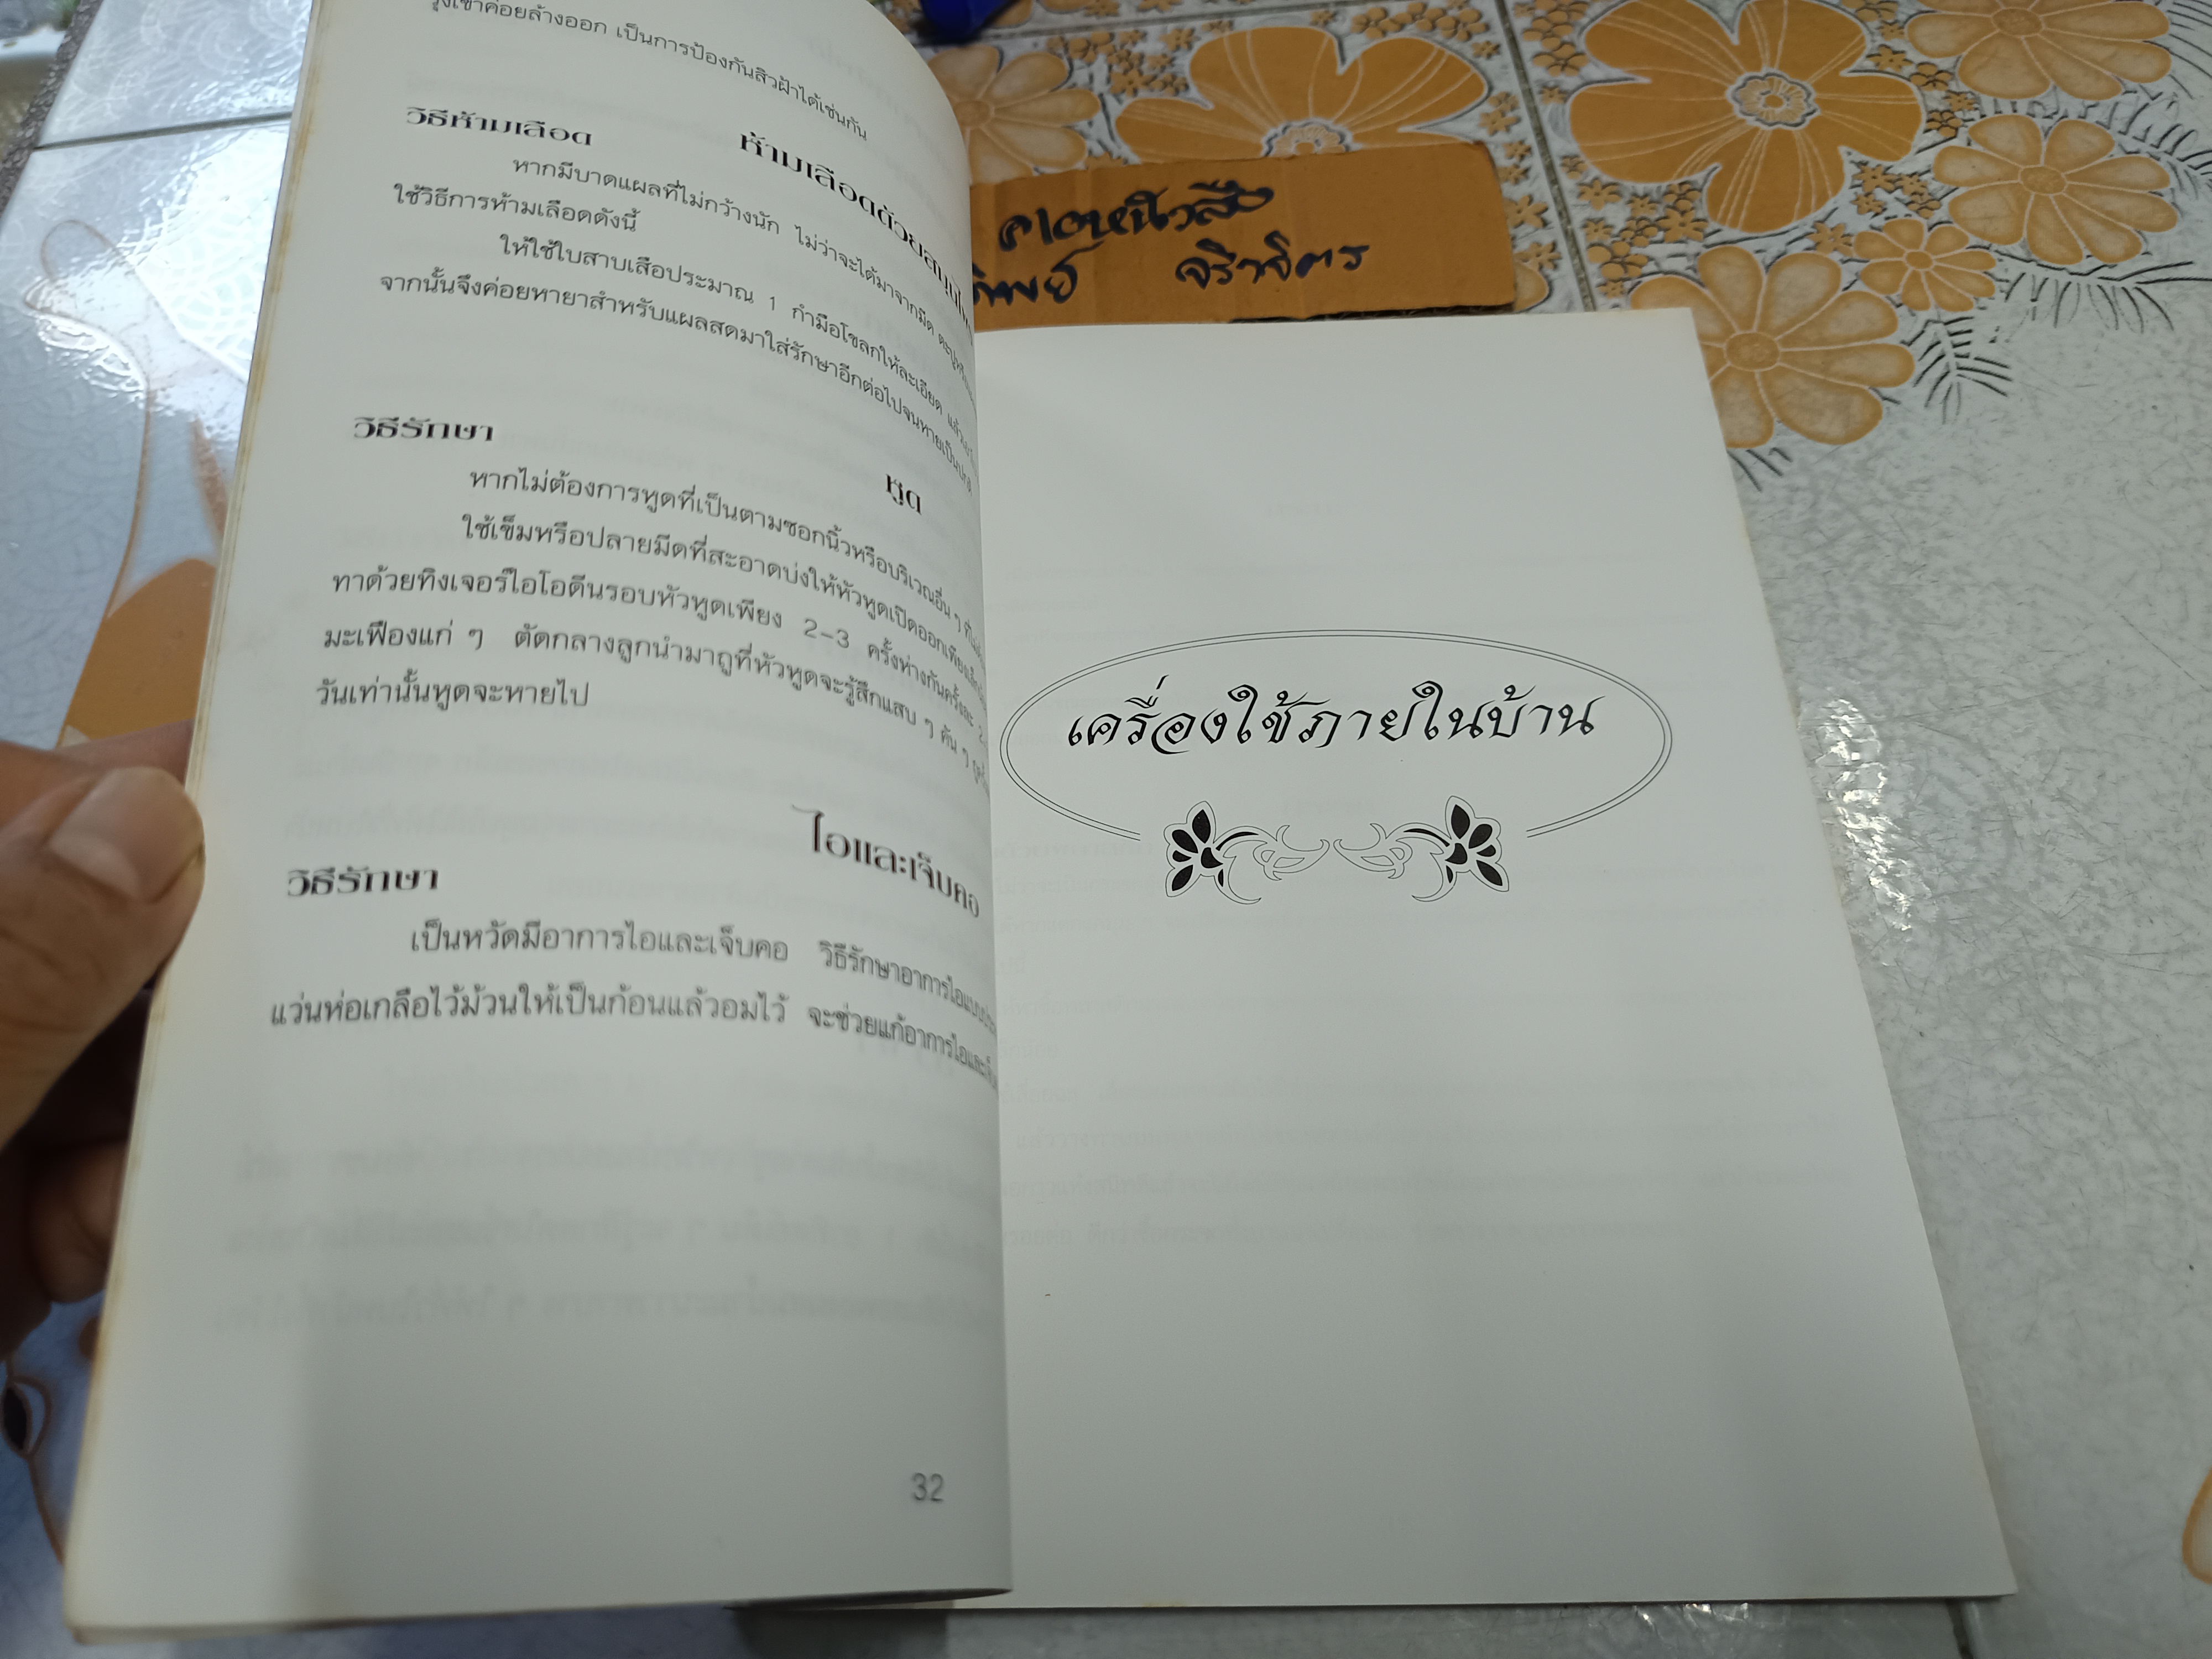 ค่อยล้างออก เป็นการป้องกันสิวฝ้าได้เช่นกัน
ห้ามเลือดด้วยสมุนไพร
วิธีห้ามเลือด
หากมีบาดแผลที่ไม่กว้างนัก ไม่ว่าจะได้มาจากมีด ตะปู
ใช้วิธีการห้ามเลือดดังนี้
ให้ใช้ใบสาบเสือประมาณ 1 กำมือโขลกให้ละเอียด แล้ว
จากนั้นจึงค่อยหายาสำหรับแผลสดมาใส่รักษาอีกต่อไปจนหายเป็นปกติ
หูด
วิธีรักษา
หากไม่ต้องการหูดที่เป็นตามซอกนิ้วหรือบริเวณอื่น ๆ
ใช้เข็มหรือปลายมีดที่สะอาดบ่งให้หัวหูดเปิดออกเพียงเล็กน้อย
ทาด้วยทิงเจอร์ไอโอดีนรอบหัวหูดเพียง 2-3 ครั้งห่างกันครั้งละ
มะเฟืองแก่ ๆ ตัดกลางลูกนำมาถูที่หัวหูดจะรู้สึกแสบ ๆ คัน ๆ
วันเท่านั้นหูดจะหายไป
ไอและเจ็บคอ
วิธีรักษา
เป็นหวัดมีอาการไอและเจ็บคอ วิธีรักษาอาการไอแบบ
แว่นห่อเกลือไว้ม้วนให้เป็นก้อนแล้วอมไว้ จะช่วยแก้อาการไอและ
32
เครื่องใช้ภายในบ้าน